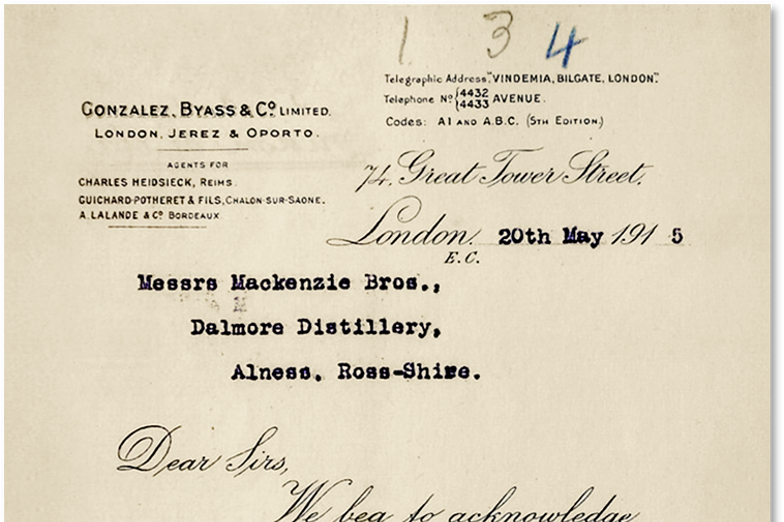 1 3 4
Telegraphic Address, "VINDEMIA, BILGATE, LONDON".
Telephone Nº {4432 4433 AVENUE.
Codes: A1 AND A.B.C. (5TH EDITION.)
GONZALEZ, BYASS & Cº LIMITED.
LONDON, JEREZ & OPORTO.
AGENTS FOR
CHARLES HEIDSIECK, REIMS.
GUICHARD-POTHERET & FILS, CHALON-SUR-SAONE.
A. LALANDE & Cº BORDEAUX.
74, Great Tower Street,
London, 20th May 1915
E.C.
Messrs Mackenzie Bros.,
Dalmore Distillery,
Alness. Ross-Shire.
Dear Sirs,
We beg to acknowledge